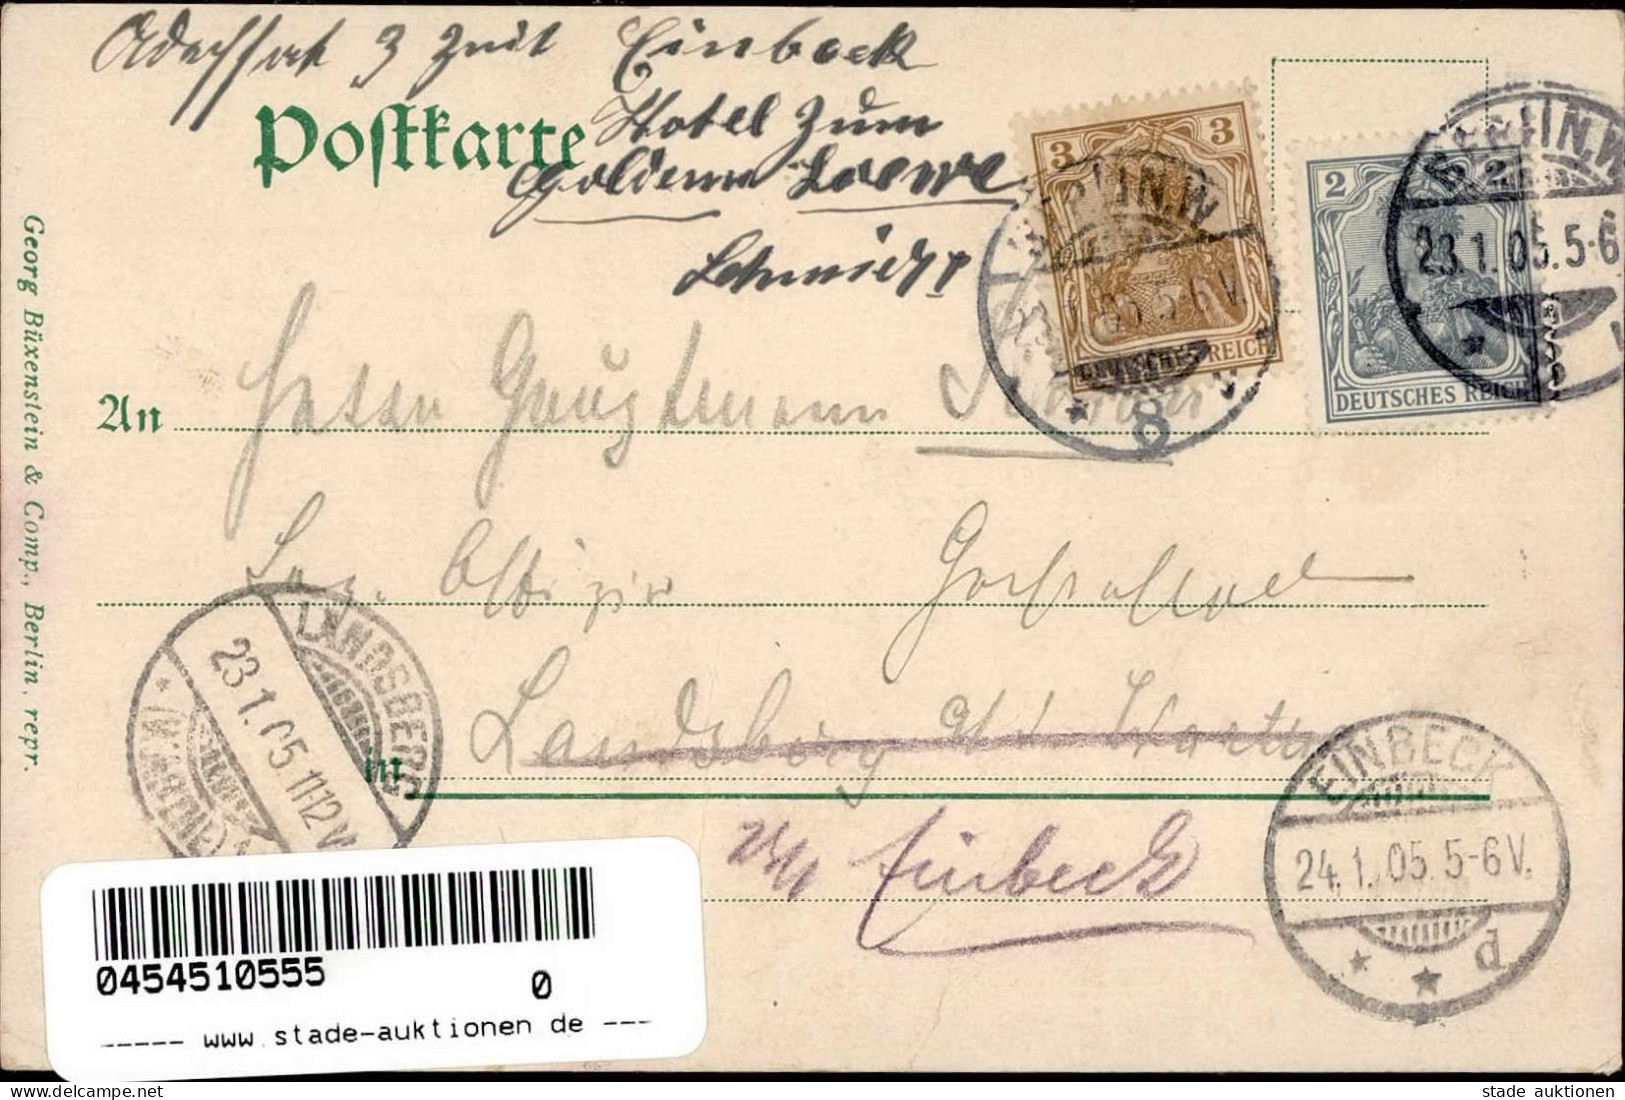 Adressat z Zeit Einbeck
Hotel Zum
Goldenen Loewe
Schmidt
Postkarte
3 3
DEUTSCHES REICH
2 2
DEUTSCHES REICH
BERLIN.W
23.1.05.5-6V.
* 8
BERLIN.W
23.1.05.5-6
An Herrn Hauptmann
in Landsberg a/d. Warthe
Einbeck
LANDSBERG
23.1.05.11-12V.
(WARTHE)
EINBECK
24.1.05.5-6V.
* * d
Georg Büxenstein & Comp., Berlin, repr.
0454510555
0
----- www.stade-auktionen de ---
stade auktionen